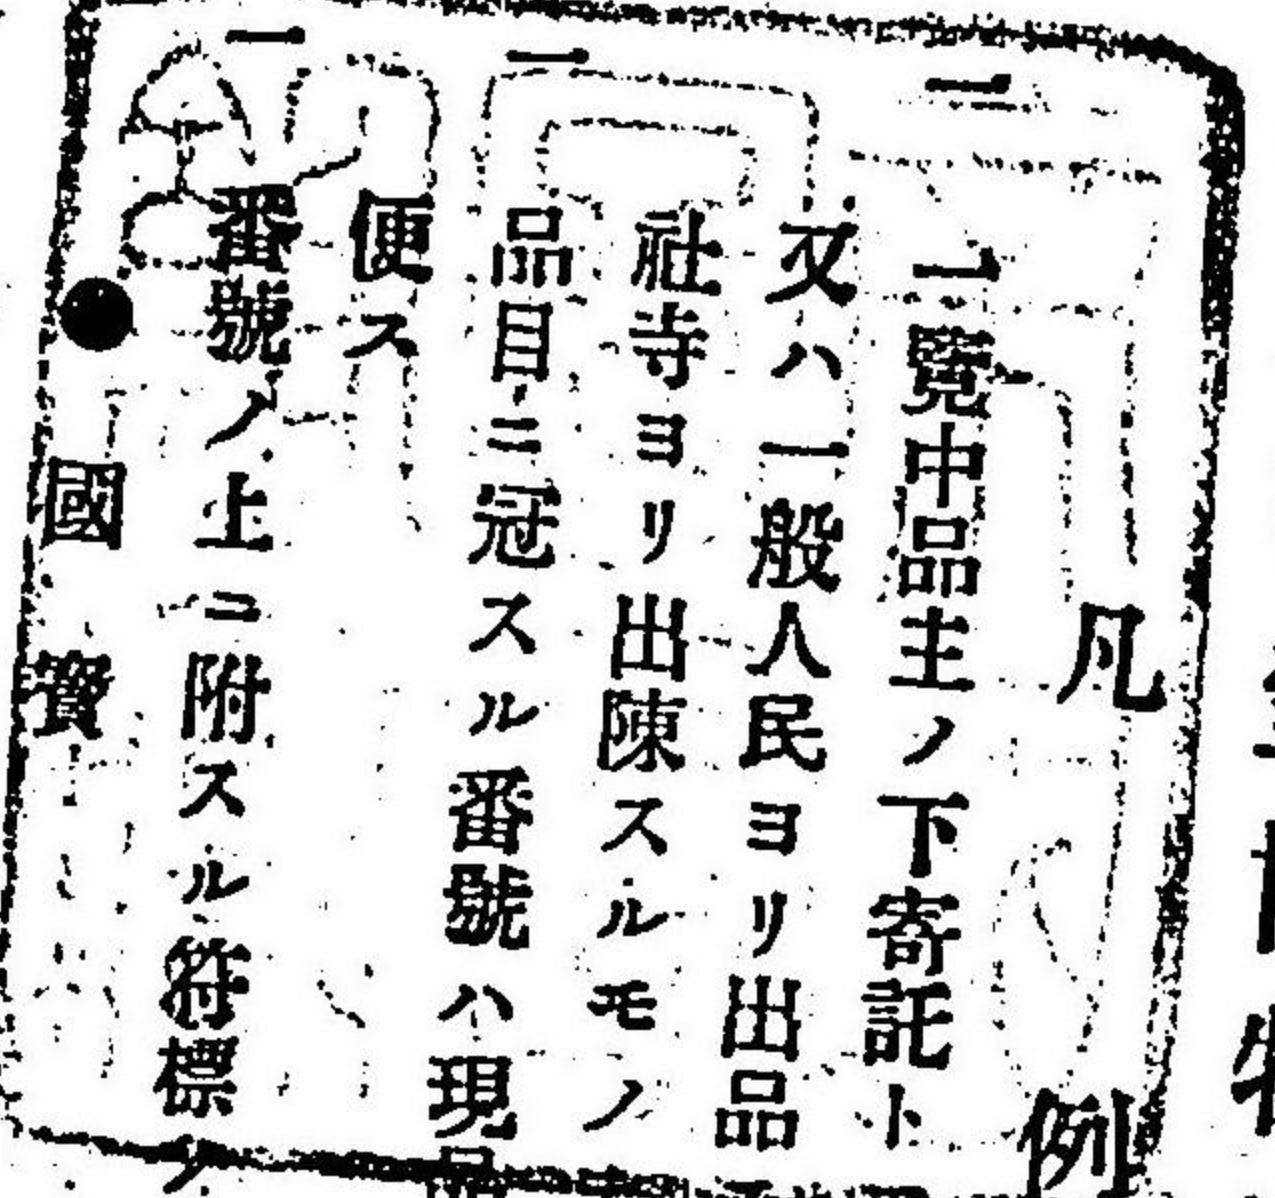 凡例
一 一覽中品主ノ下寄託ト
又ハ一般人民ヨリ出品
社寺ヨリ出陳スルモノ
一 品目ニ冠スル番號ハ現品
便ス
一 番號ノ上ニ附スル符標ノ
●國寶